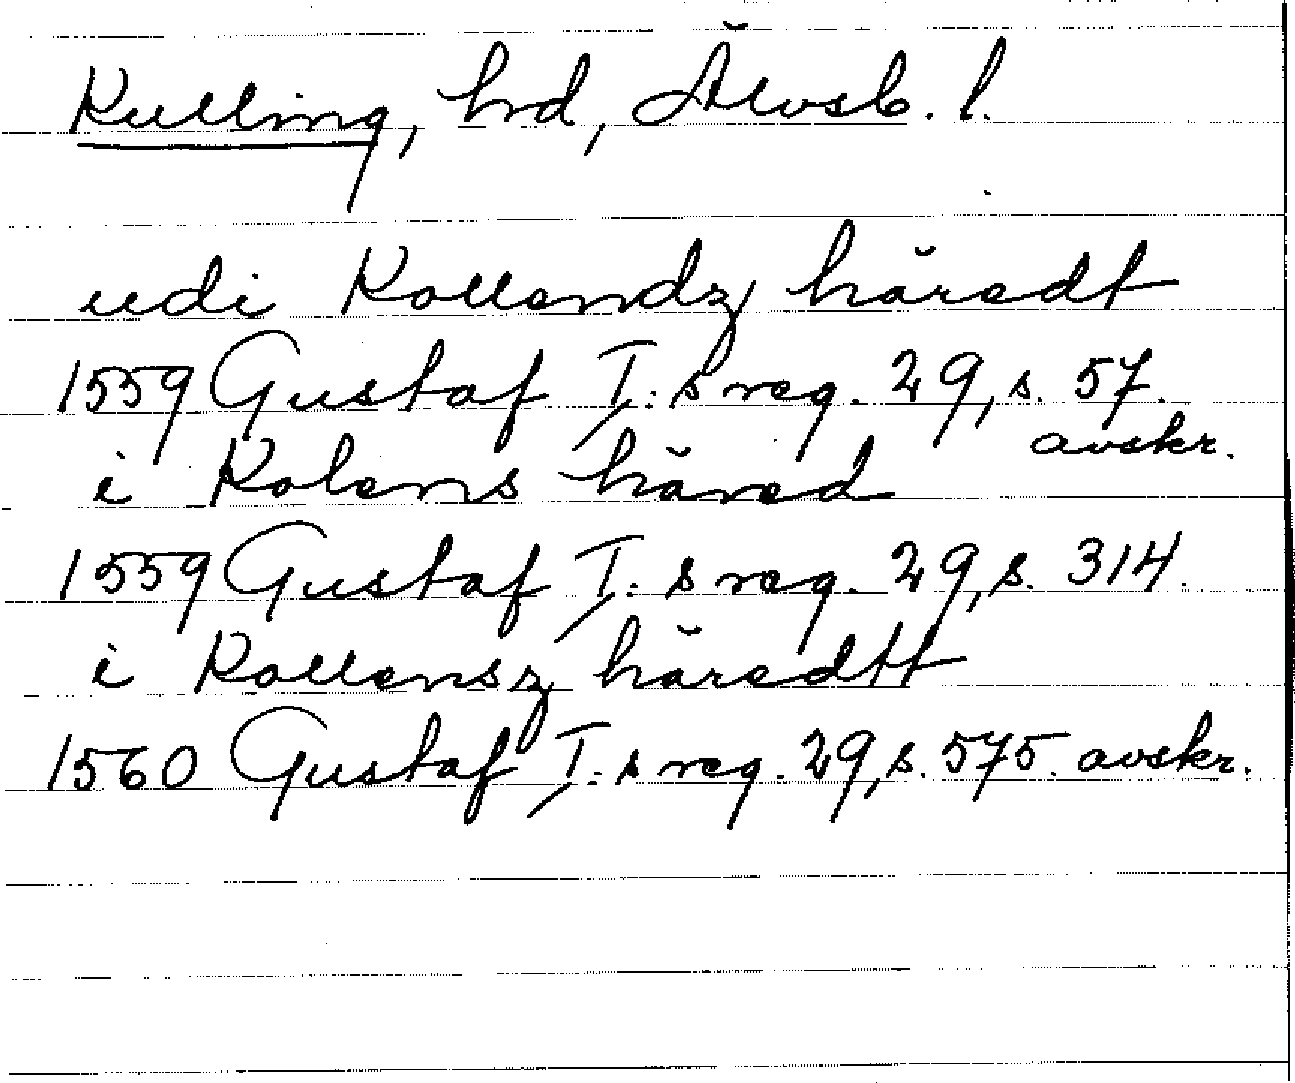 Kulling, hd, Älvsb. l.
udi Kollendz häredt
1559 Gustaf I:s reg. 29, s. 57.
avskr.
i Kolens häred
1559 Gustaf I:s reg. 29, s. 314.
i Kollensz häredtt
1560 Gustaf I:s reg. 29, s. 575. avskr.